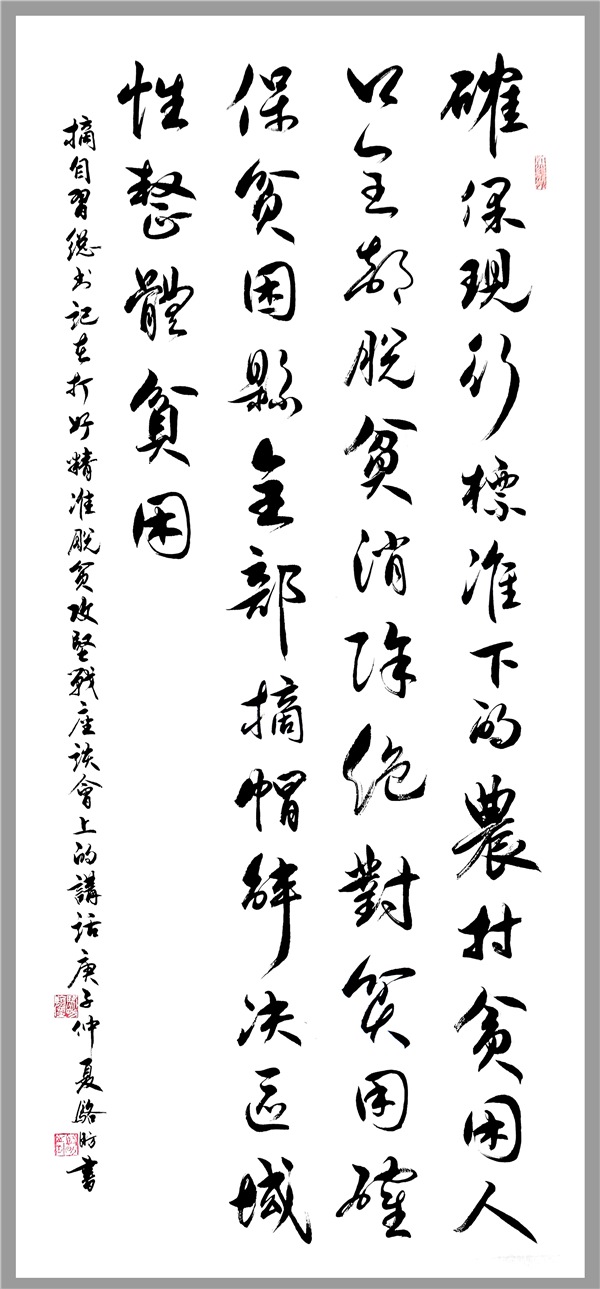 確保現行標准下的農村貧困人
口全部脱貧消除絶對貧困確
保貧困縣全部摘帽解决區域
性整體貧困
摘自習總书記在打好精准脱貧攻堅戰座谈會上的講話庚子仲夏駱昉書